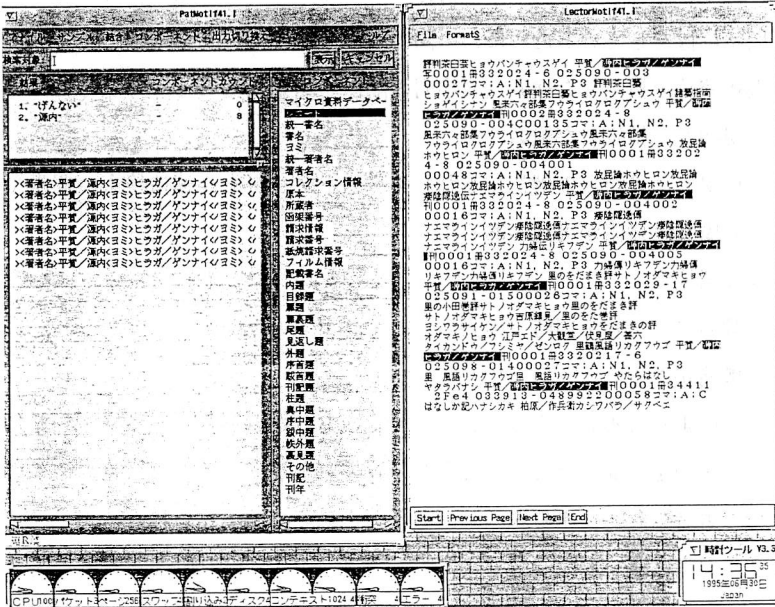 PatMotif41.1
ファイル サンプル 結合 コンポーネント 出力切り換え ヘルプ
検索対象: 表示 キャンセル
結果 コンポーネントカウント
1. "げんない" - 0
2. "源内" - 8
><著者名>平賀/源内<ヨミ>ヒラガ/ゲンナイ<ヨミ> <
><著者名>平賀/源内<ヨミ>ヒラガ/ゲンナイ<ヨミ> <
><著者名>平賀/源内<ヨミ>ヒラガ/ゲンナイ<ヨミ> <
><著者名>平賀/源内<ヨミ>ヒラガ/ゲンナイ<ヨミ> <
><著者名>平賀/源内<ヨミ>ヒラガ/ゲンナイ<ヨミ> <
><著者名>平賀/源内<ヨミ>ヒラガ/ゲンナイ<ヨミ> <
><著者名>平賀/源内<ヨミ>ヒラガ/ゲンナイ<ヨミ> <
><著者名>平賀/源内<ヨミ>ヒラガ/ゲンナイ<ヨミ> <
コンポーネント
マイクロ資料データベー
ユニット
統一書名
書名
ヨミ
統一著者名
著者名
コレクション情報
原本
所蔵者
函架番号
請求情報
請求番号
紙焼請求番号
フィルム情報
記載書名
内題
目録題
扉題
扉裏題
尾題
見返し題
外題
序首題
跋首題
刊記題
柱題
奥中題
序中題
跋中題
帙外題
裏見題
その他
刊記
刊年
LectorMotif41.1
File FormatS
評判茶臼芸ヒョウバンチャウスゲイ 平賀/源内ヒラガ/ゲンナイ
写0001冊332024-6 025090-003
00027コマ;A;N1, N2, P3 評判茶臼芸
ヒョウバンチャウスゲイ評判茶臼芸ヒョウバンチャウスゲイ諸芸指南
ショゲイシナン 風来六々部集フウライロクロクブシュウ 平賀/源内
ヒラガ/ゲンナイ刊0002冊332024-8
025090-004C00135コマ;A;N1, N2, P3
風来六々部集フウライロクロクブシュウ風来六々部集
フウライロクロクブシュウ風来六部集フウライロクブシュウ 放屁論
ホウヒロン 平賀/源内ヒラガ/ゲンナイ刊0001冊33202
4-8 025090-004001
00048コマ;A;N1, N2, P3 放屁論ホウヒロン放屁論
ホウヒロン放屁論ホウヒロン放屁論ホウヒロン放屁論ホウヒロン
痿陰隠逸伝ナエマラインイツデン 平賀/源内ヒラガ/ゲンナイ
刊0001冊332024-8 025090-004002
00016コマ;A;N1, N2, P3 痿陰隠逸傳
ナエマラインイツデン痿陰隠逸傳ナエマラインイツデン痿陰隠逸傳
ナエマラインイツデン痿陰隠逸傳ナエマラインイツデン痿陰隠逸傳
ナエマラインイツデン 力婦伝リキフデン 平賀/源内ヒラガ/ゲンナイ
刊0001冊332024-8 025090-004005
00016コマ;A;N1, N2, P3 力婦傳リキフデン力婦傳
リキフデン力婦傳リキフデン 里のをだまき評サトノオダマキヒョウ
平賀/源内ヒラガ/ゲンナイ刊0001冊332029-17
025091-01500026コマ;A;N1, N2, P3
里の小田巻評サトノオダマキヒョウ里のをだまき評
サトノオダマキヒョウ吉原細見/里のをた巻評
ヨシワラサイケン/サトノオダマキヒョウをだまきの評
オダマキノヒョウ 江戸エド/大観堂/伏見屋/善六
タイカンドウ/フシミヤ/ゼンロク 里鶴風語リカクフウゴ 平賀/源内
ヒラガ/ゲンナイ刊0001冊3320217-6
025098-01400027コマ;A;N1, N2, P3
里 風語リカクフウゴ里 風語リカクフウゴ やたらはなし
ヤタラバナシ 平賀/源内ヒラガ/ゲンナイ刊0001冊34411
2Fe4 033913-04899220005 8コマ;A;C
はなしか記ハナシカキ 柏原/作兵衛カシワバラ/サクベエ
Start Previous Page Next Page End
時計ツール V3.3
14:36 35
1995年06月30日
Japan
CPU100 パケット ページ256 スワップ4 割り込み3 ディスク4 コンテキスト1024 4 衝突 4 エラー 4